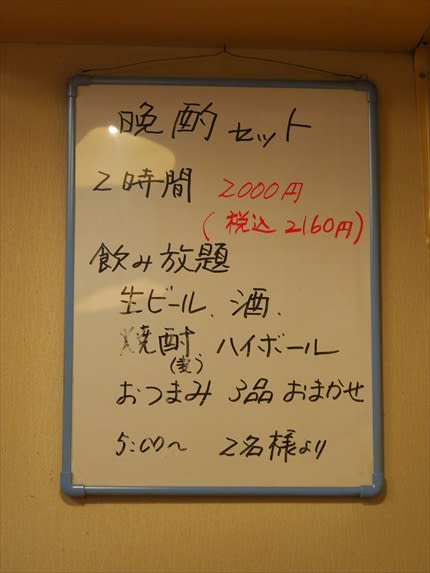 晩酌セット
2時間 2000円
(税込2160円)
飲み放題
生ビール、酒、
焼酎 ハイボール
(麦)
おつまみ 3品 おまかせ
5:00〜 2名様より